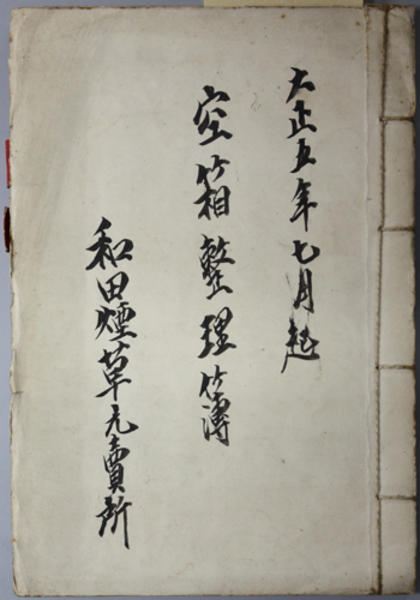 大正五年七月起
空箱整理簿
和田煙草元賣所